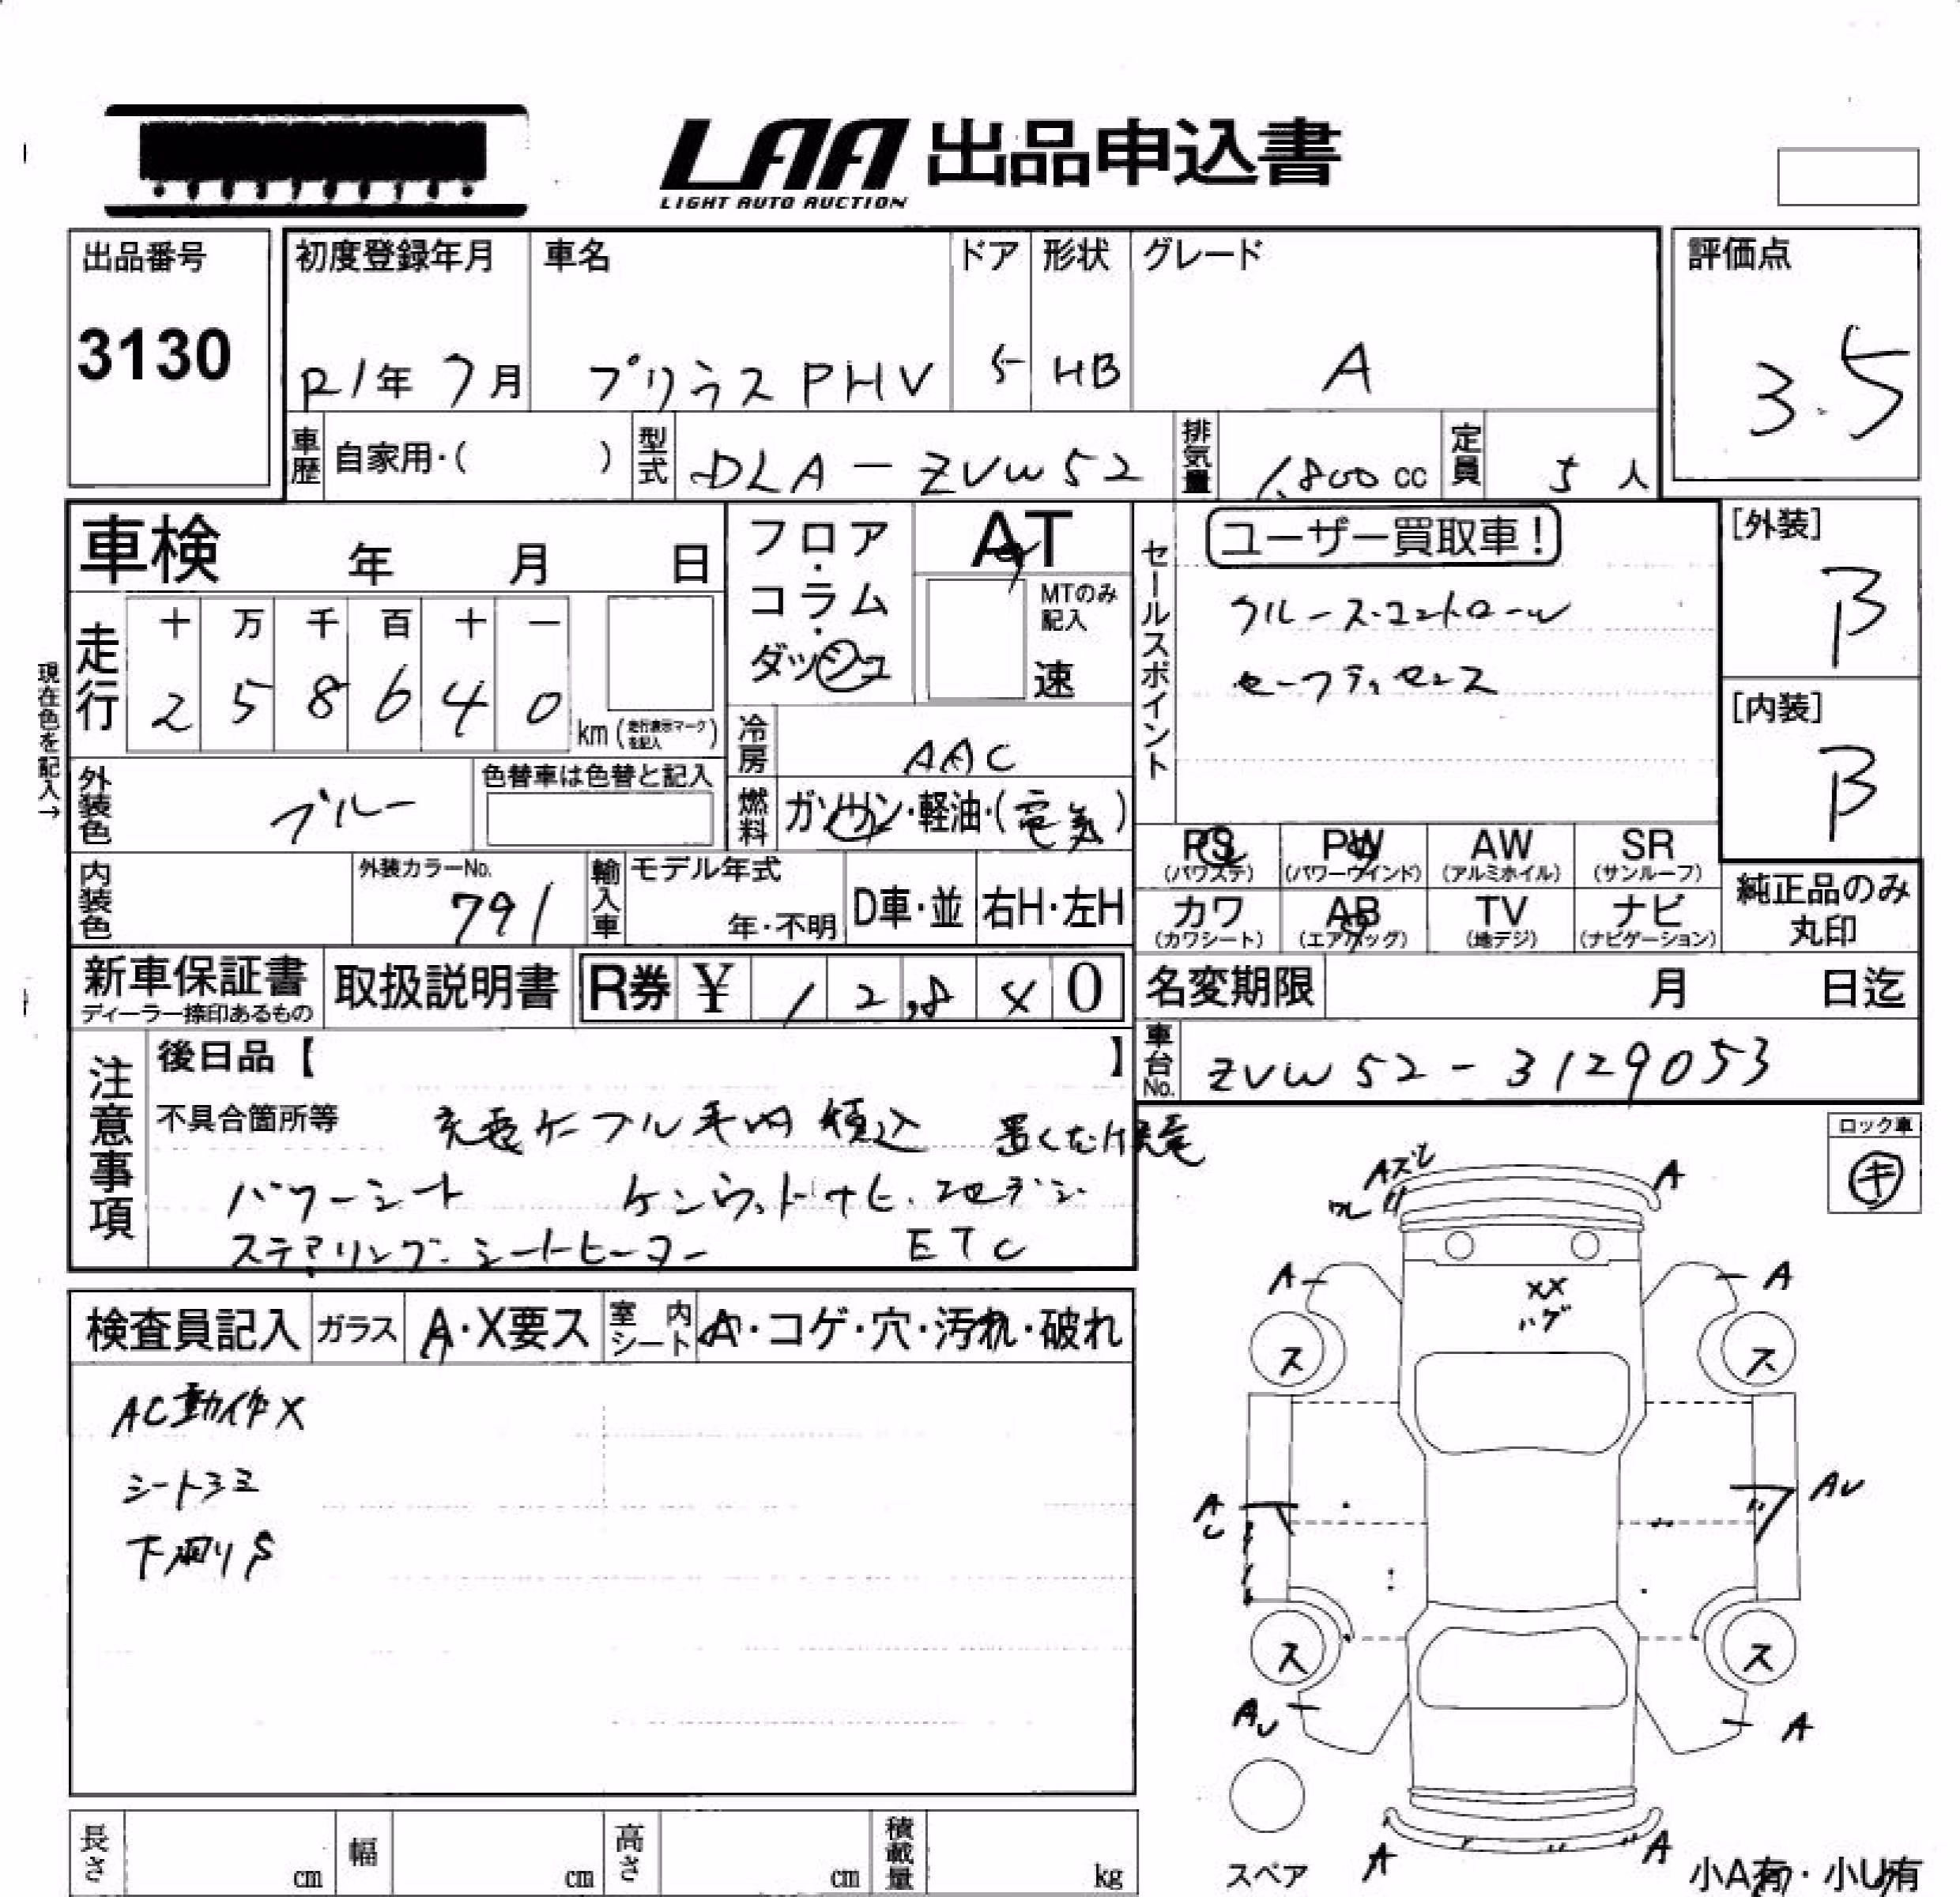 LAA 出品申込書
LIGHT AUTO AUCTION
出品番号
3130
初度登録年月
R1年 7月
車名
プリウス PHV
ドア
5
形状
HB
グレード
A
評価点
3.5
車歴 自家用・( )
型式 DLA-ZVW52
排気量 1,800 cc
定員 5 人
車検 年 月 日
フロア・コラム・ダッシュ
AT
MTのみ記入
速
セールスポイント
ユーザー買取車!
クルーズ.コントロール
セーフティセンス
[外装]
B
[内装]
B
現在色を記入→
走行
十 万 千 百 十 一
2 5 8 6 4 0
km (走行表示マークを記入)
冷房 AAC
外装色 ブルー
色替車は色替と記入
燃料 ガソリン・軽油・(電気)
PS (パワステ)
PW (パワーウインド)
AW (アルミホイル)
SR (サンルーフ)
カワ (カワシート)
AB (エアバッグ)
TV (地デジ)
ナビ (ナビゲーション)
純正品のみ丸印
内装色
外装カラーNo.
791
輸入車
モデル年式
年・不明
D車・並
右H・左H
新車保証書
ディーラー捺印あるもの
取扱説明書
R券 ¥ 12,840
名変期限 月 日迄
車台No. ZVW52-3129053
注意事項
後日品【 】
不具合箇所等
充電ケーブル車内積込 置くだけ充電
パワーシート ケンウッドナビ.地デジ
ステアリング.シートヒーター ETC
ロック車
キ
検査員記入
ガラス A・X要ス
室内シート A・コゲ・穴・汚れ・破れ
AC動作X
シートシミ
下廻りS
Aズレ
ワレ
A
A
A
XX
ハゲ
ス
ス
AU
AU
ス
ス
AU
A
スペア
A
A
小A有・小U有
長さ cm
幅 cm
高さ cm
積載量 kg